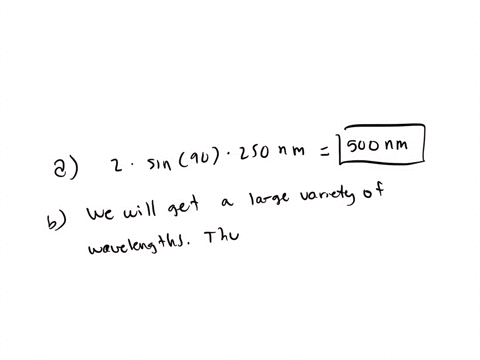 a) 2 · sin(90) · 250 nm = 500 nm
b) We will get a large variety of
wavelengths. Thu